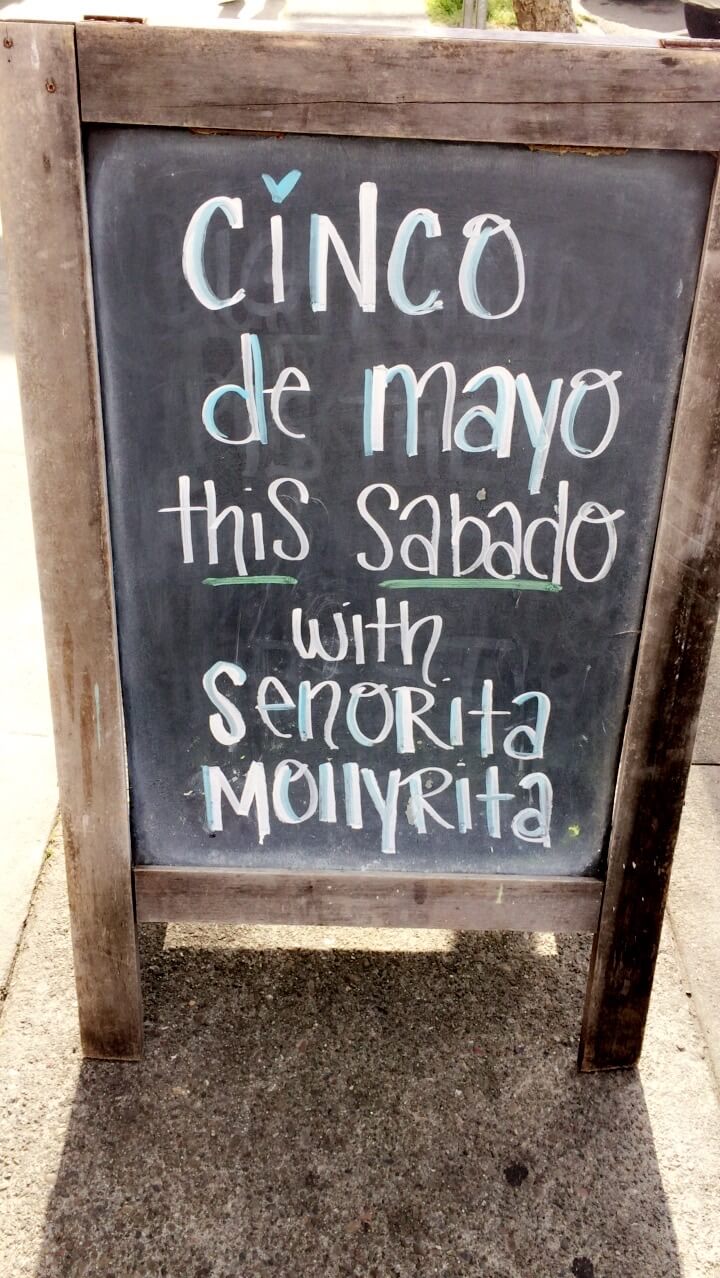 CiNCO
de mayo
thiS Sabado
with
SeñORita
MOllyRita